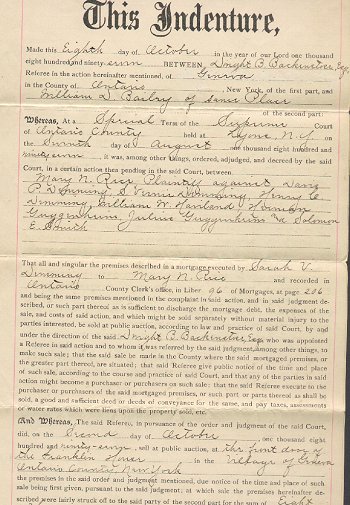 This Indenture,
Made this Eighth day of October in the year of our Lord one thousand
eight hundred and ninety seven BETWEEN Dwight B. Backenstose, Esq.
Referee in the action hereinafter mentioned, of Geneva
in the County of Ontario New York, of the first part, and
William D. Bailey of same Place
of the second part:
Whereas, At a Special Term of the Supreme Court
of Ontario County held at Lyons, N.Y. on
the Seventh day of August one thousand eight hundred and
ninety seven, it was, among other things, ordered, adjudged, and decreed by the said
Court, in a certain action then pending in the said Court, between
Mary N. Rice Plaintiff against
P. Demming, S. Demming, Henry C.
Demming, William W.
Guggenheim, Julius Guggenheim & Solomon
E.
That all and singular the premises described in a mortgage executed by Sarah V.
Demming to Mary N. Rice and recorded in
Ontario County Clerk's office, in Liber 96 of Mortgages, at page 206
and being the same premises mentioned in the complaint in said action, and in said judgment de-
scribed, or such part thereof as is sufficient to discharge the mortgage debt, the expenses of the
sale, and costs of said action, and which might be sold separately without material injury to the
parties interested, be sold at public auction, according to law and practice of said Court, by and
under the direction of the said Dwight B. Backenstose, Esq. who was appointed
a Referee in said action and to whom it was referred by the said judgment, among other things, to
make such sale; that the said sale be made in the County where the said mortgaged premises, or
the greater part thereof, are situated; that said Referee give public notice of the time and place
of such sale, according to the course and practice of said Court, and that any of the parties in said
action might become a purchaser or purchasers on such sale; that the said Referee execute to the
purchaser or purchasers of the said mortgaged premises, or such part or parts thereof as shall be
sold, a good and sufficient deed or deeds of conveyance for the same, and pay taxes, assessments
or water rates which were liens upon the property sold, etc.
And Whereas, The said Referee, in pursuance of the order and judgment of the said Court,
did, on the Second day of October one thousand eight
hundred and ninety-seven, sell at public auction, at the front door of
the Franklin House in the Village of Geneva
Ontario County New York
the premises in the said order and judgment mentioned, due notice of the time and place of such
sale being first given, pursuant to the said judgment; at which sale the premises hereinafter de-
scribed were fairly struck off to the said party of the second part for the sum of Eight